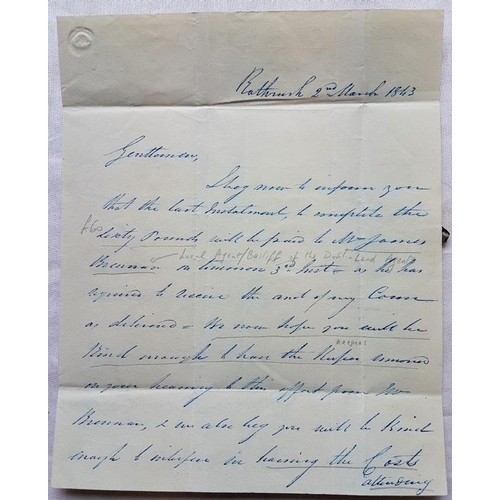 Rathrush 2nd March 1843
Gentlemen,
I beg now to inform you
that the last Instalment, to complete the
£60
Sixty Pounds will be paid to Mr James
Local Agent/Bailiff of the Dublin Land Agent
Brennan on tomorrow 3rd Inst - as he has
agreed to receive the and of my Corn
as delivered - We now hope you will be
keepers
kind enough to have the Keepers removed
on your hearing to this effect from Mr
Brennan, & we also beg you will be kind
enough to interfere in having the Costs
attending